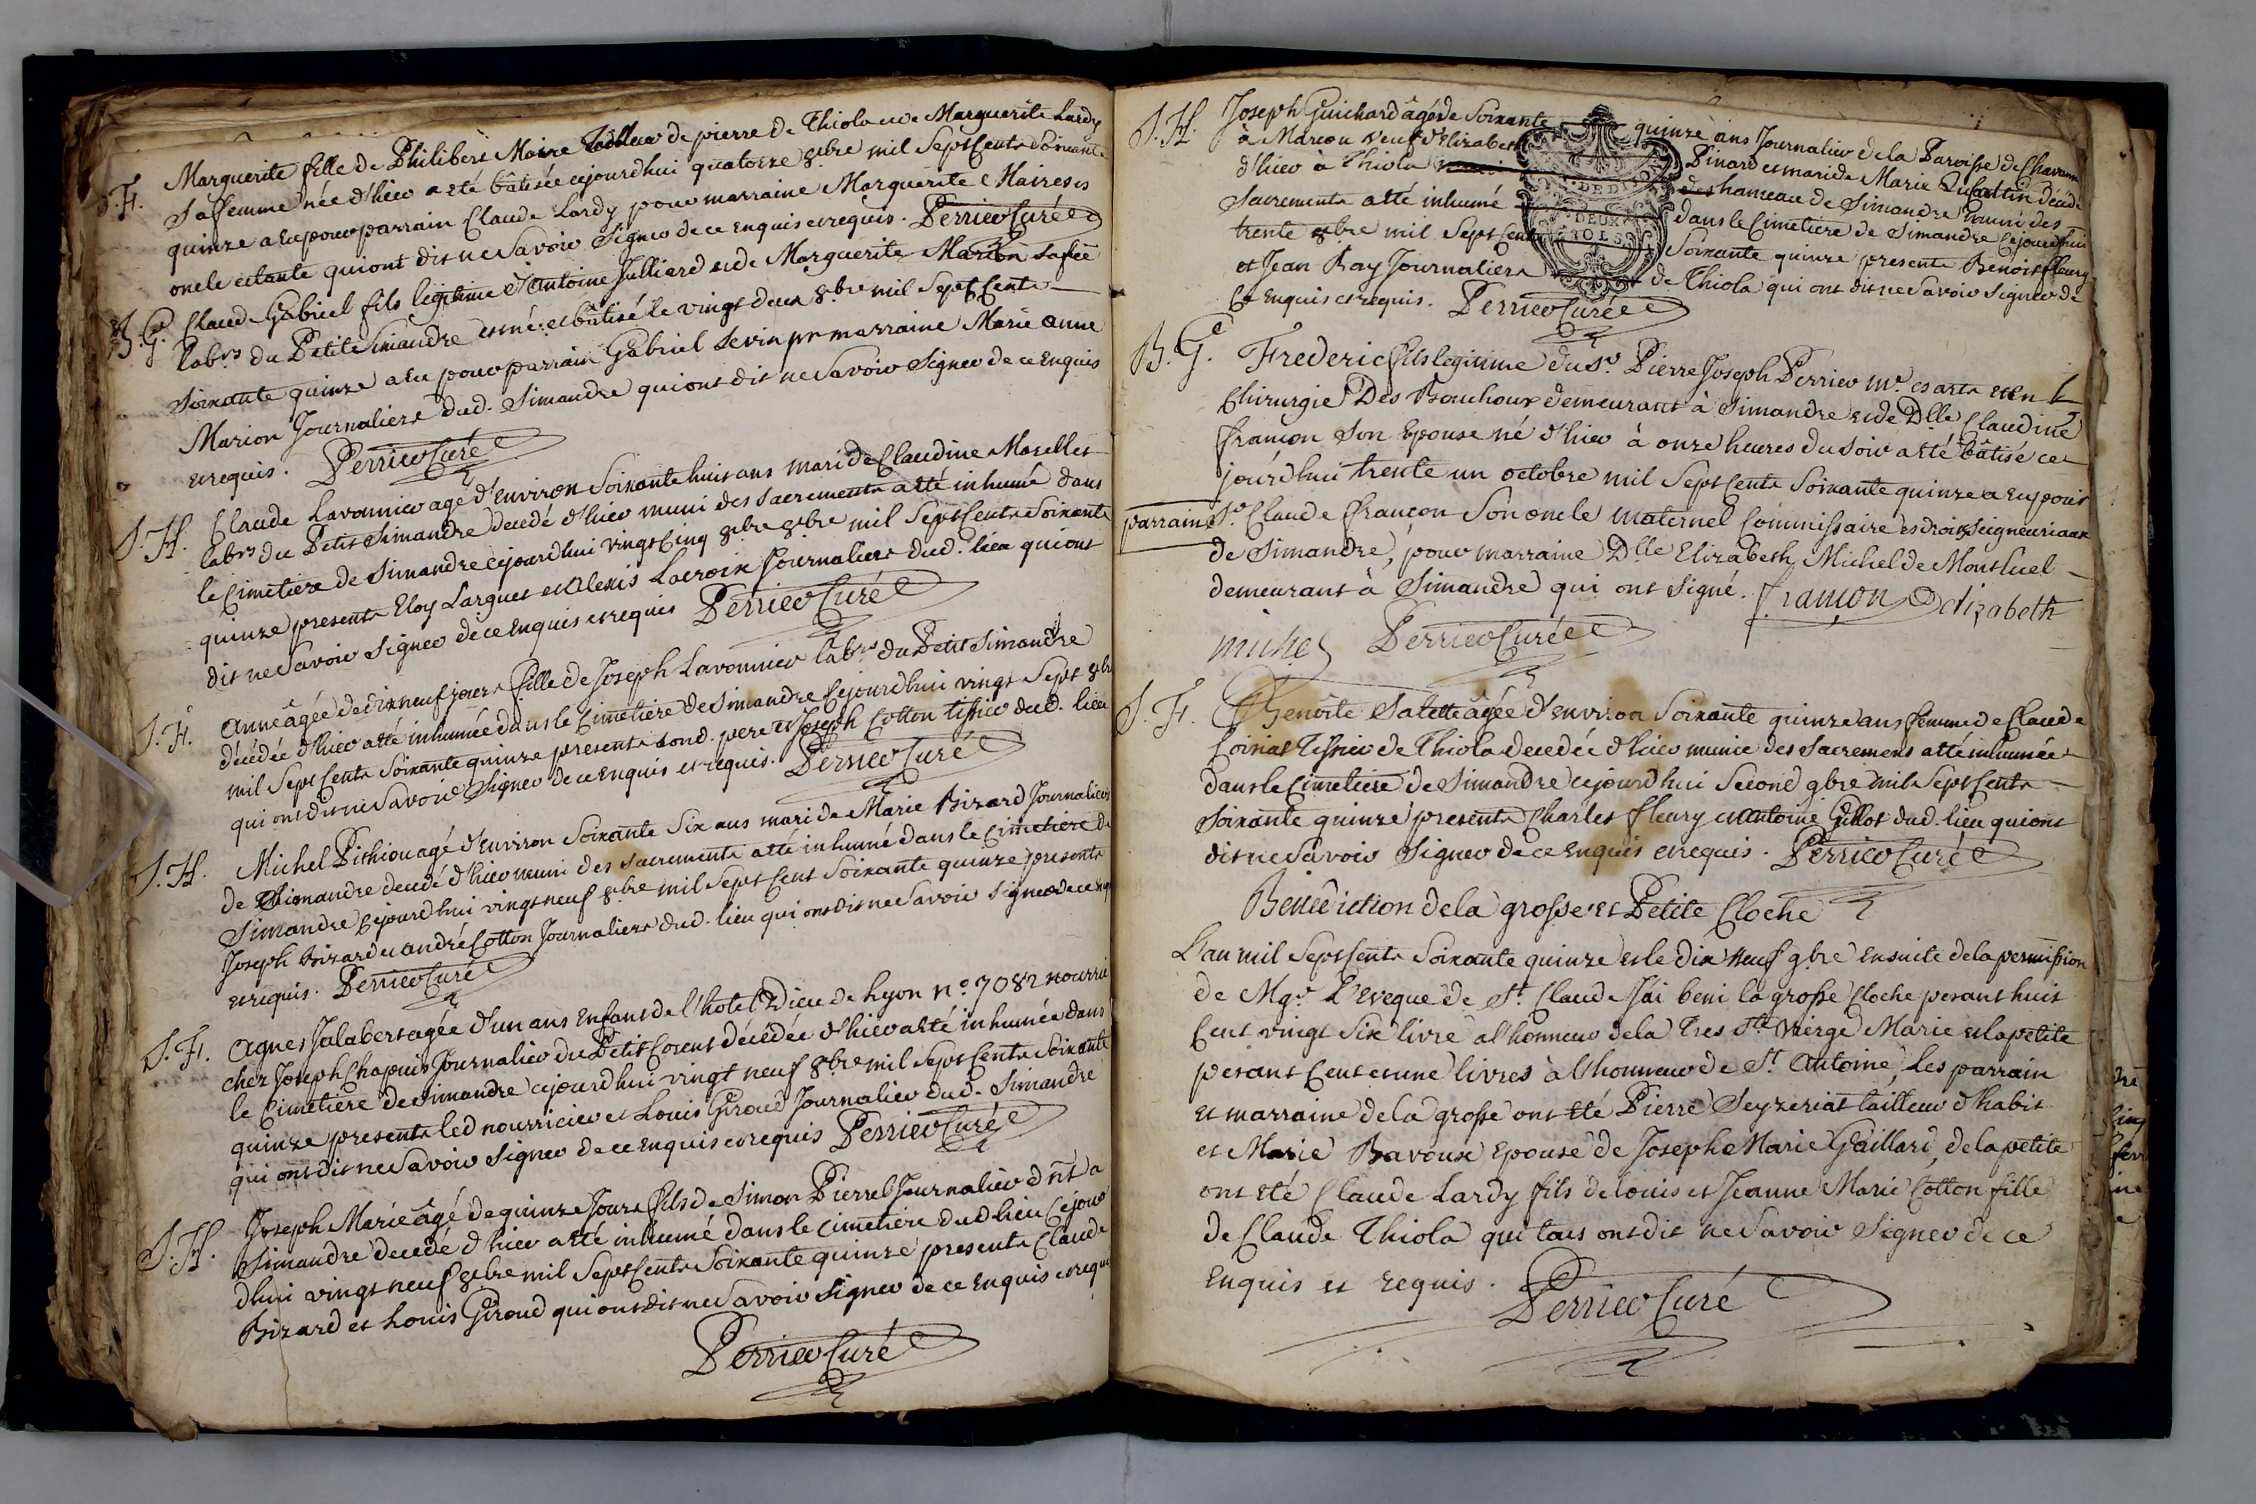 B.F. Marguerite fille de Philibert Maire tailleur de pierre de Thiola et de Marguerite Lardy
Sa femme née d'hier a eté bâtisée cejourd'hui quatorze 8bre mil Sept Cents Soixante
quinze a eu pour parrain Claude Lardy pour marraine Marguerite Maire ses
oncle et tante qui ont dit ne Savoir Signer de ce enquis et requis. Perrier Curé
B.G. Claude Gabriel fils legitime d'Antoine Julliard et de Marguerite Marion Sa fee
labrs du Petit Simandre est né et bâtisé le vingt deux 8bre mil Sept Cents
Soixante quinze a eu pour parrain Gabriel Sevin pr marraine Marie anne
Marion Journaliers dud. Simandre qui ont dit ne Savoir Signer de ce enquis
et requis. Perrier Curé
S.H. Claude Lavonnier agé d'environ Soixante huit ans mari de Claudine Morellet
labrs du Petit Simandre decedé d'hier muni des Sacrements a eté inhumé dans
le Cimetiere de Simandre cejourd'hui vingt Cinq 8bre 8bre mil Sept Cents Soixante
quinze presents Eloy Larguet et Alexis Lacroix Journaliers dud. lieu qui ont
dit ne Savoir Signer de ce enquis et requis Perrier Curé
S.F. Anne âgée de dix neuf jours fille de Joseph Lavonnier labrs du Petit Simandre
décédée d'hier a eté inhumée dans le Cimetiere de Simandre Cejourd'hui vingt Sept 8bre
mil Sept Cents Soixante quinze presents Sond. pere et Joseph Cotton tissier dud. lieu
qui ont dit ne Savoir Signer de ce enquis et requis. Perrier Curé
S.H. Michel Pithiou agé d'environ Soixante Six ans mari de Marie Bizard Journaliers
de Simandre decedé d'hier muni des Sacrements a eté inhumé dans le Cimetiere de
Simandre Cejourd'hui vingt neuf 8bre mil Sept Cent Soixante quinze presents
Joseph Bizard et andré Cotton Journaliers dud. lieu qui ont dit ne Savoir Signer de ce enq
et requis. Perrier Curé
S.F. Agnes Jalabert agée d'un ans Enfant de l'hotel Dieu de Lyon n° 7082 nourrie
chez Joseph Chapuis Journalier du Petit Corent décédée d'hier a eté inhumée dans
le Cimetiere de Simandre cejourd'hui vingt neuf 8bre mil Sept Cents Soixante
quinze presents led nourricier et Louis Giroud Journalier dud. Simandre
qui ont dit ne Savoir Signer de ce enquis et requis Perrier Curé
S.H. Joseph Marie âgé de quinze Jours fils de Simon Pierrel Journalier dnt a
Simandre decedé d'hier a eté inhumé dans le cimetiere dud lieu Cejour
dhui vingt neuf 8bre mil Sept Cents Soixante quinze presents Claude
Bizard et Louis Giroud qui ont dit ne Savoir Signer de ce enquis et requ
Perrier Curé
S.H. Joseph Guichard âgé de Soixante quinze ans Journalier de la Paroisse de Chavann
à Marcou veuf d'Elizabeth Pinard et mari de Marie Quintin décédé
d'hier à Thiola hameau de Simandre muni des
Sacrements a eté inhumé dans le Cimetiere de Simandre Cejourd'hui
trente 8bre mil Sept Cents Soixante quinze presents Benoit fleury
et Jean Ray Journaliers de Thiola qui ont dit ne Savoir Signer de
Ce enquis et requis. Perrier Curé
DEUX
SOLS
B.G. Frederic fils legitime du Sr. Pierre Joseph Perrier mr. es arts et en
Chirurgie Des Bouchoux demeurant à Simandre et de Dlle Claudine
françon Son Epouse né d'hier à onze heures du Soir a eté bâtisé ce
jourd'hui trente un octobre mil Sept Cents Soixante quinze a eu pour
parrain Sr. Claude françon Son oncle maternel Commissaire es droits Seigneuriaux
de Simandre, pour marraine Dlle Elizabeth Michel de Montluel
demeurant à Simandre qui ont Signé. françon Elizabeth
michel Perrier Curé
S.F. Benoite Salette âgée d'environ Soixante quinze ans femme de Claude
Loiriat Tissier de Thiola decedée d'hier munie des Sacremens a eté inhumée
dans le Cimetiere de Simandre cejourd'hui Second 9bre mil Sept Cents
Soixante quinze presents Charles fleury et Antoine Gillot dud. lieu qui ont
dit ne Savoir Signer de ce enquis et requis. Perrier Curé
Benediction de la grosse et Petite Cloche
L'an mil Sept Cents Soixante quinze et le dix neuf 9bre ensuite de la permission
de Mgr L'Eveque de St. Claude J'ai beni la grosse Cloche pesant huit
Cent vingt Six livre a l'honneur de la Tres Ste. Vierge Marie et la petite
pesant Cent et une livres à l'honneur de St. Antoine, les parrain
et marraine de la grosse ont eté Pierre Seyzeriat tailleur d'habit
et Marie Bavoux Epouse de Joseph Marie Gaillard, de la petite
ont eté Claude Lardy fils de Louis et Jeanne Marie Cotton fille
de Claude Thiola qui tous ont dit ne Savoir Signer de ce
Enquis et requis. Perrier Curé